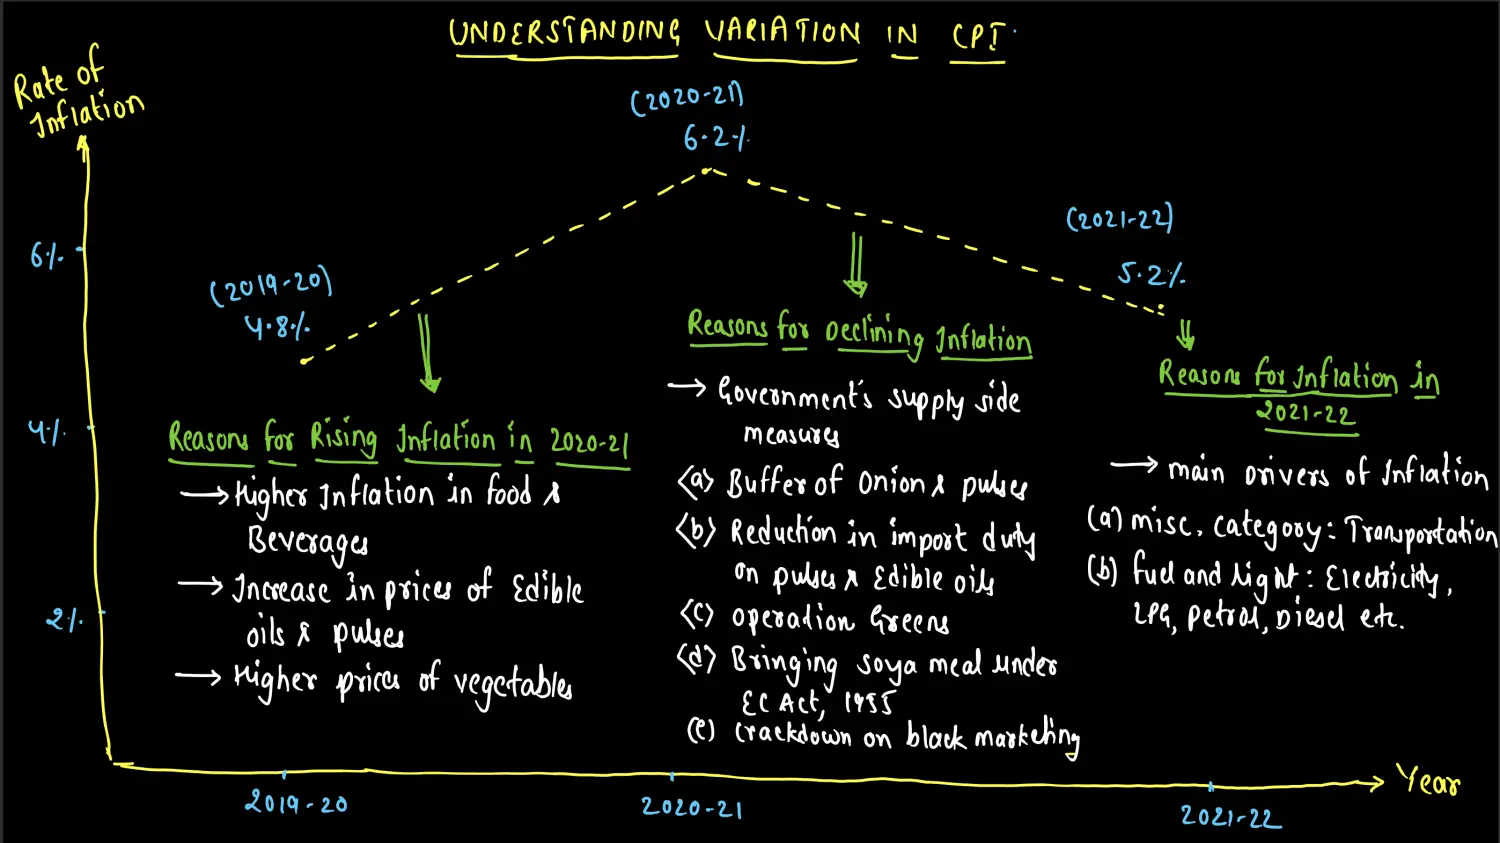 UNDERSTANDING VARIATION IN CPI
Rate of
Inflation
(2020-21)
6.2%
(2021-22)
5.2%
6%
(2019-20)
4.8%
4%
2%
Reasons for Rising Inflation in 2020-21
→ Higher Inflation in food &
Beverages
→ Increase in prices of Edible
oils & pulses
→ Higher prices of vegetables
Reasons for Declining Inflation
→ Government's supply side
measures
(a) Buffer of Onion & pulses
(b) Reduction in import duty
on pulses & Edible oils
(c) operation Greens
(d) Bringing soya meal under
EC Act, 1955
(e) crackdown on black marketing
Reasons for Inflation in
2021-22
→ main Drivers of Inflation
(a) misc. category: Transportation
(b) fuel and light: Electricity,
LPG, petrol, Diesel etc.
2019-20
2020-21
2021-22
Year